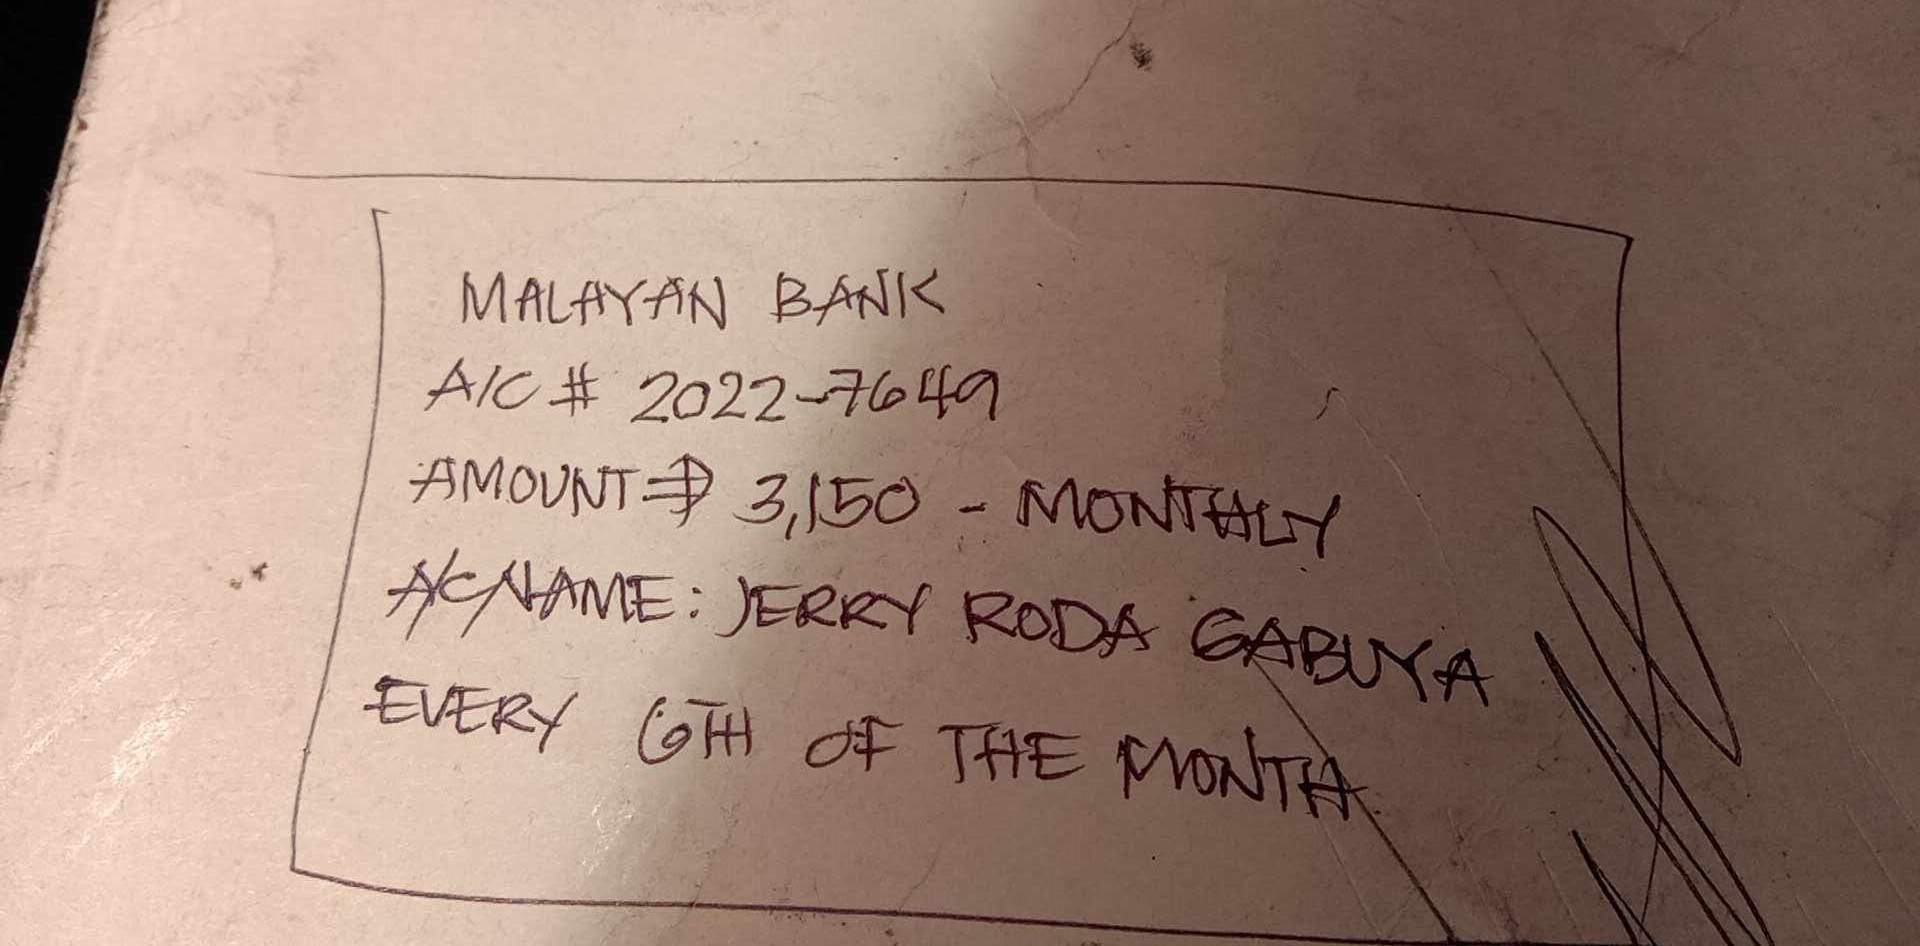 MALAYAN BANK
A/C # 2022-7649
AMOUNT ⇒ 3,150 - MONTHLY
A/C NAME: JERRY RODA GABUYA
EVERY 6TH OF THE MONTH